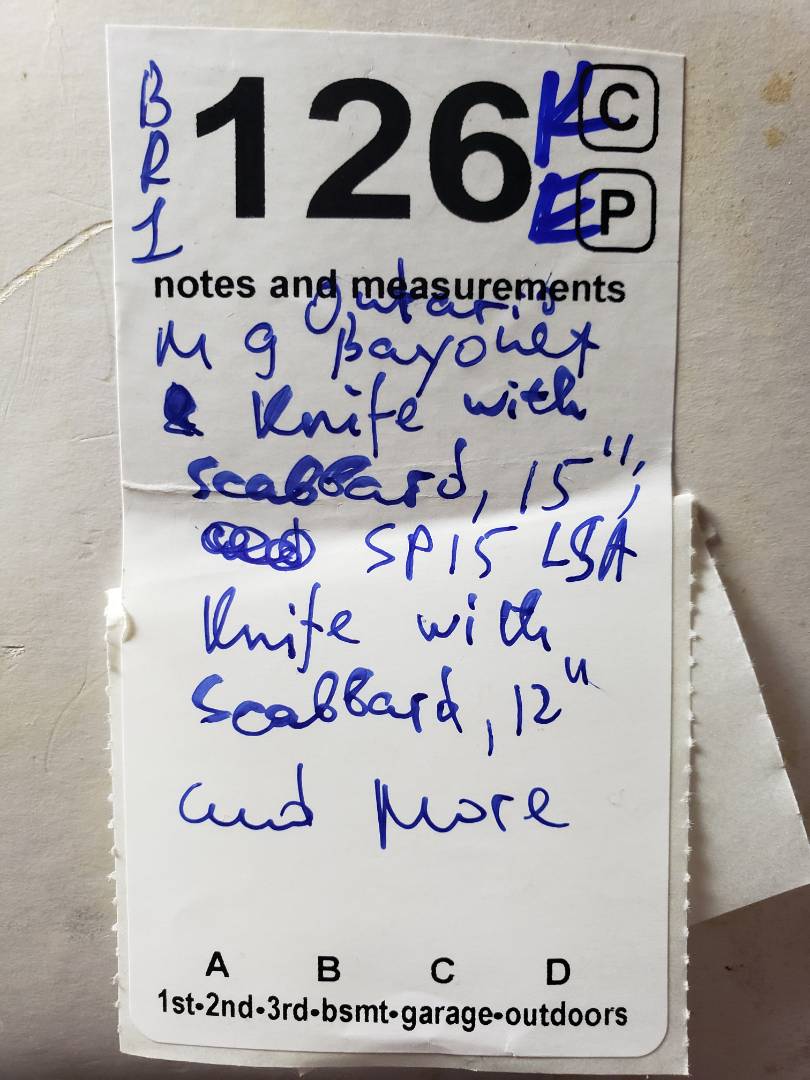 B
R
1
126
K
C
E
P
notes and measurements
Ontario
M 9 Bayonet
& Knife with
Scabbard, 15";
SP15 LSA
Knife with
Scabbard, 12"
and More
A B C D
1st•2nd•3rd•bsmt•garage•outdoors